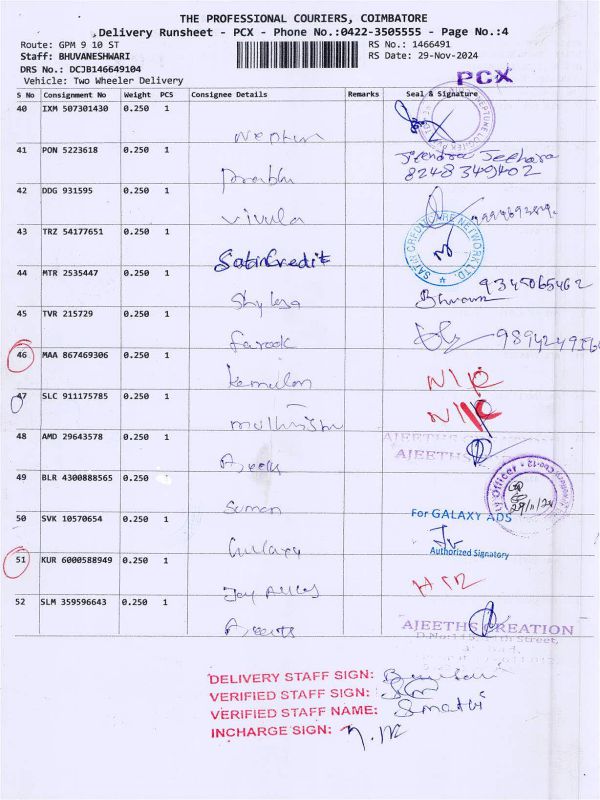 THE PROFESSIONAL COURIERS, COIMBATORE
Delivery Runsheet - PCX - Phone No.:0422-3505555 - Page No.:4
Route: GPM 9 10 ST
RS No.: 1466491
Staff: BHUVANESHWARI
RS Date: 29-Nov-2024
DRS No.: DCJB146649104
Vehicle: Two Wheeler Delivery
PCX
S No Consignment No Weight PCS Consignee Details Remarks Seal & Signature
40 IXM 507301430 0.250 1
41 PON 5223618 0.250 1
Prabhu 8248349402
42 DDG 931595 0.250 1
Vivula
43 TRZ 54177651 0.250 1
SatinCredit SATIN CREDIT CARE NETWORK LTD.
44 MTR 2535447 0.250 1
9345065462
45 TVR 215729 0.250 1
Farook
46 MAA 867469306 0.250 1
47 SLC 911175785 0.250 1
48 AMD 29643578 0.250 1
AJEETHS
49 BLR 4300888565 0.250
Suman 29/11/24
50 SVK 10570654 0.250 1
For GALAXY ADS
Authorized Signatory
51 KUR 6000588949 0.250 1
52 SLM 359596643 0.250 1
AJEETHS CREATION
DELIVERY STAFF SIGN:
VERIFIED STAFF SIGN:
VERIFIED STAFF NAME:
INCHARGE SIGN: